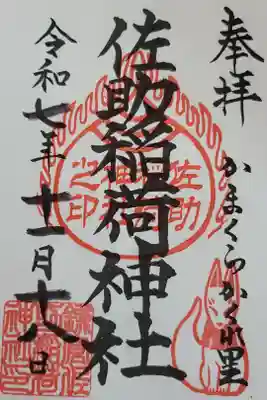 奉拝
かまくらかくれ里
佐助稲荷神社
佐助稲荷神社之印
令和七年十一月十八日